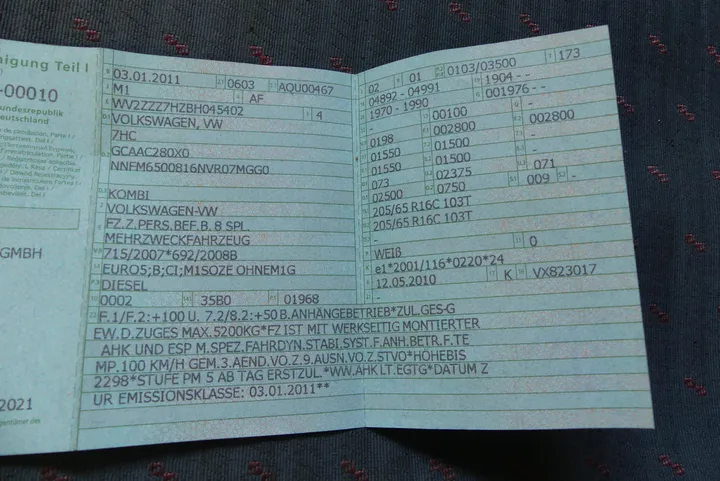 nigung Teil I
-00010
undesrepublik
eutschland
GMBH
2021
03.01.2011 0603 AQU00467
M1 AF
WV2ZZZ7HZBH045402 4
VOLKSWAGEN, VW
7HC
GCAAC280X0
NNFM6500816NVR07MGG0
KOMBI
VOLKSWAGEN-VW
FZ.Z.PERS.BEF.B. 8 SPL.
MEHRZWECKFAHRZEUG
715/2007*692/2008B
EURO5;B;CI;M1SOZE OHNEM1G
DIESEL
0002 35B0 01968
02 01 0103/03500 173
04892 - 04991 1904 - -
1970 - 1990 001976 - -
- 00100 -
0198 002800 002800
01550 01500 -
01550 01500 -
073 02375 071
02500 0750 009 -
205/65 R16C 103T
205/65 R16C 103T
-
WEIß 0
e1*2001/116*0220*24
12.05.2010 K VX823017
-
F.1/F.2:+100 U. 7.2/8.2:+50 B.ANHÄNGEBETRIEB*ZUL.GES-G
EW.D.ZUGES MAX.5200KG*FZ IST MIT WERKSEITIG MONTIERTER
AHK UND ESP M.SPEZ.FAHRDYN.STABI.SYST.F.ANH.BETR.F.TE
MP.100 KM/H GEM.3.AEND.VO.Z.9.AUSN.VO.Z.STVO*HÖHEBIS
2298*STUFE PM 5 AB TAG ERSTZUL.*WW.AHK LT.EGTG*DATUM Z
UR EMISSIONSKLASSE: 03.01.2011**